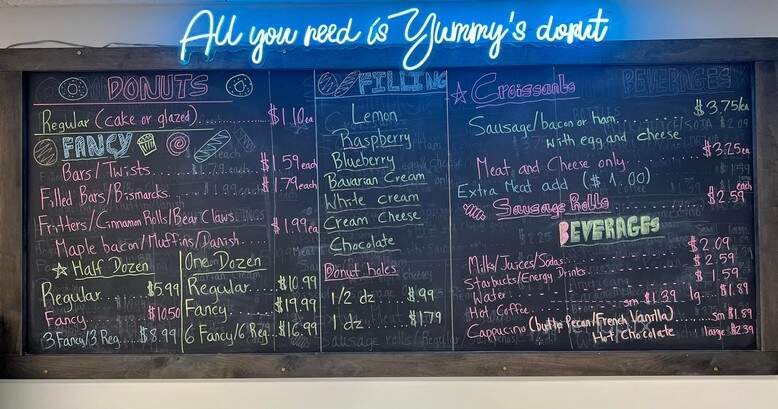 All you need is Yummy's donut
DONUTS
Regular (cake or glazed)....... $1.10ea
FANCY
Bars/Twists.......... $1.59each
Filled Bars/Bismarcks....... $1.79each
Fritters/Cinnamon Rolls/Bear Claws....
Maple bacon/Muffins/Danish.... $1.99ea
Half Dozen
Regular... $5.99
Fancy..... $10.50
3 Fancy/3 Reg... $8.99
One Dozen
Regular..... $10.99
Fancy..... $19.99
6 Fancy/6 Reg... $16.99
FILLING
Lemon
Raspberry
Blueberry
Bavarian Cream
White cream
Cream Cheese
Chocolate
Donut holes
1/2 dz.... $.99
1 dz..... $1.79
Croissants
Sausage/bacon or Ham....... $3.75ea
with egg and cheese
Meat and Cheese only........ $3.25ea
Extra Meat add ($1.00)
Sausage Rolls........ $2.59 each
BEVERAGES
Milk/Juices/Sodas........ $2.09
Starbucks/Energy Drinks....... $2.59
Water........ $1.59
Hot Coffee........ sm $1.39 lg. $1.89
Cappucino (butter Pecan/French Vanilla)..... sm $1.89
Hot/Chocolate large $2.39